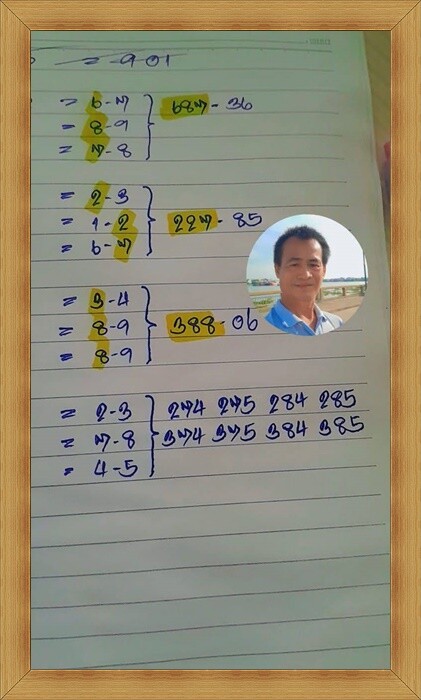 = 6-7 } 687 - 36
= 8-9
= 7-8
= 2-3
= 1-2 } 227 - 85
= 6-7
= 3-4
= 8-9 } 388-06
= 8-9
= 2-3 } 274 275 284 285
= 7-8 374 375 384 385
= 4-5